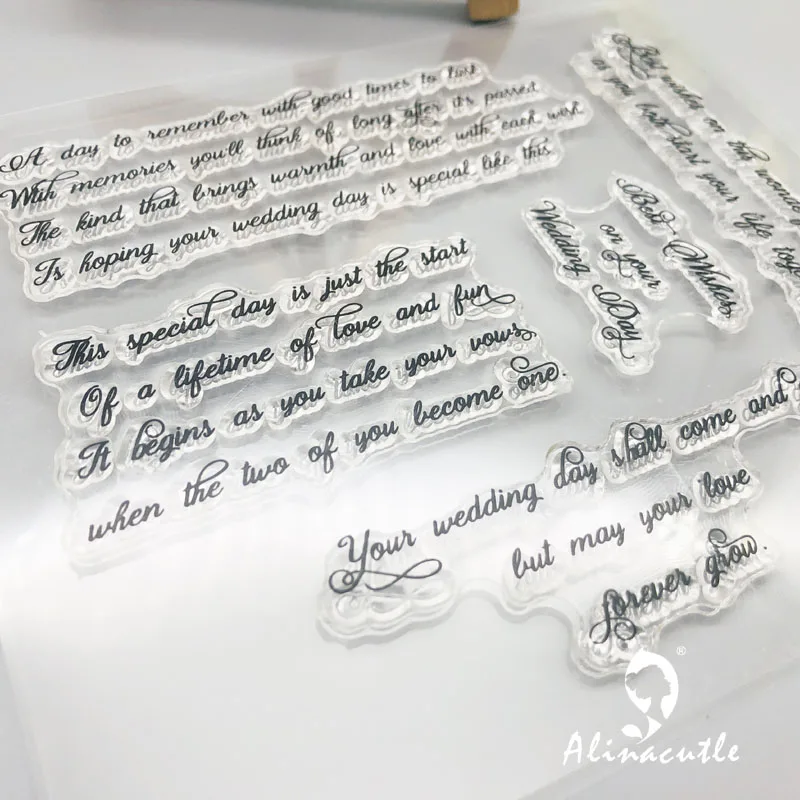 A day to remember with good times to last
With memories you'll think of, long after it's passed
The kind that brings warmth and love with each wish
Is hoping your wedding day is special like this
This special day is just the start
Of a lifetime of love and fun
It begins as you take your vows
when the two of you become one.
Best wishes on this
as you both start your life
Best Wishes
on your
Wedding Day
Your wedding day shall come and
but may your love
forever grow.
®
Alinacutle